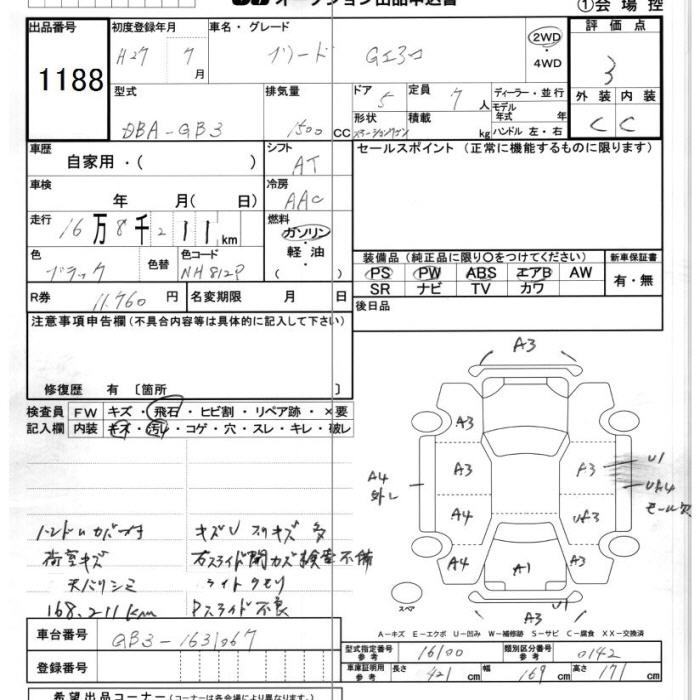 オークション出品申込書
①会場控
出品番号 1188
初度登録年月 H27 7月
車名・グレード フリード Gエアロ
2WD
・4WD
評価点 3
外装 内装
C C
型式 DBA-GB3
排気量 1500 CC
ドア 5
定員 7人
形状 ステーションワゴン
積載 kg
ディーラー・並行
モデル年式 年
ハンドル 左・右
車歴 自家用・( )
シフト AT
セールスポイント (正常に機能するものに限ります)
車検 年 月( 日)
冷房 AAC
走行 16万8千211km
燃料 ガソリン・軽油
色 ブラック 色替
色コード NH812P
装備品(純正品に限り○をつけてください)
新車保証書
PS PW ABS エアB AW
有・無
SR ナビ TV カワ
R券 11,760円
名変期限 月 日
後日品
注意事項申告欄(不具合内容等は具体的に記入して下さい)
修復歴 有〔箇所 〕
検査員記入欄
FW キズ・飛石・ヒビ割・リペア跡・×要
内装 キズ・汚れ・コゲ・穴・スレ・キレ・破レ
A3
A3
A3
A3
U1
A4
外し
UA4
モール欠
A4
UA3
A4
A1
A3
U1
A3
スペア
キズU スリキズ多
荷室キズ
天バリシミ
ライトクモリ
168,211km
Pスライド不良
A-キズ E-エクボ U-凹み W-補修跡 S-サビ C-腐食 XX-交換済
車台番号 GB3-1631067
登録番号
型式指定番号 参考 16100
類別区分番号 参考 0142
車庫証明用 参考 長さ 421cm 幅 169cm 高さ 171cm
希望出品コーナー(コーナーは各会場により異なります)